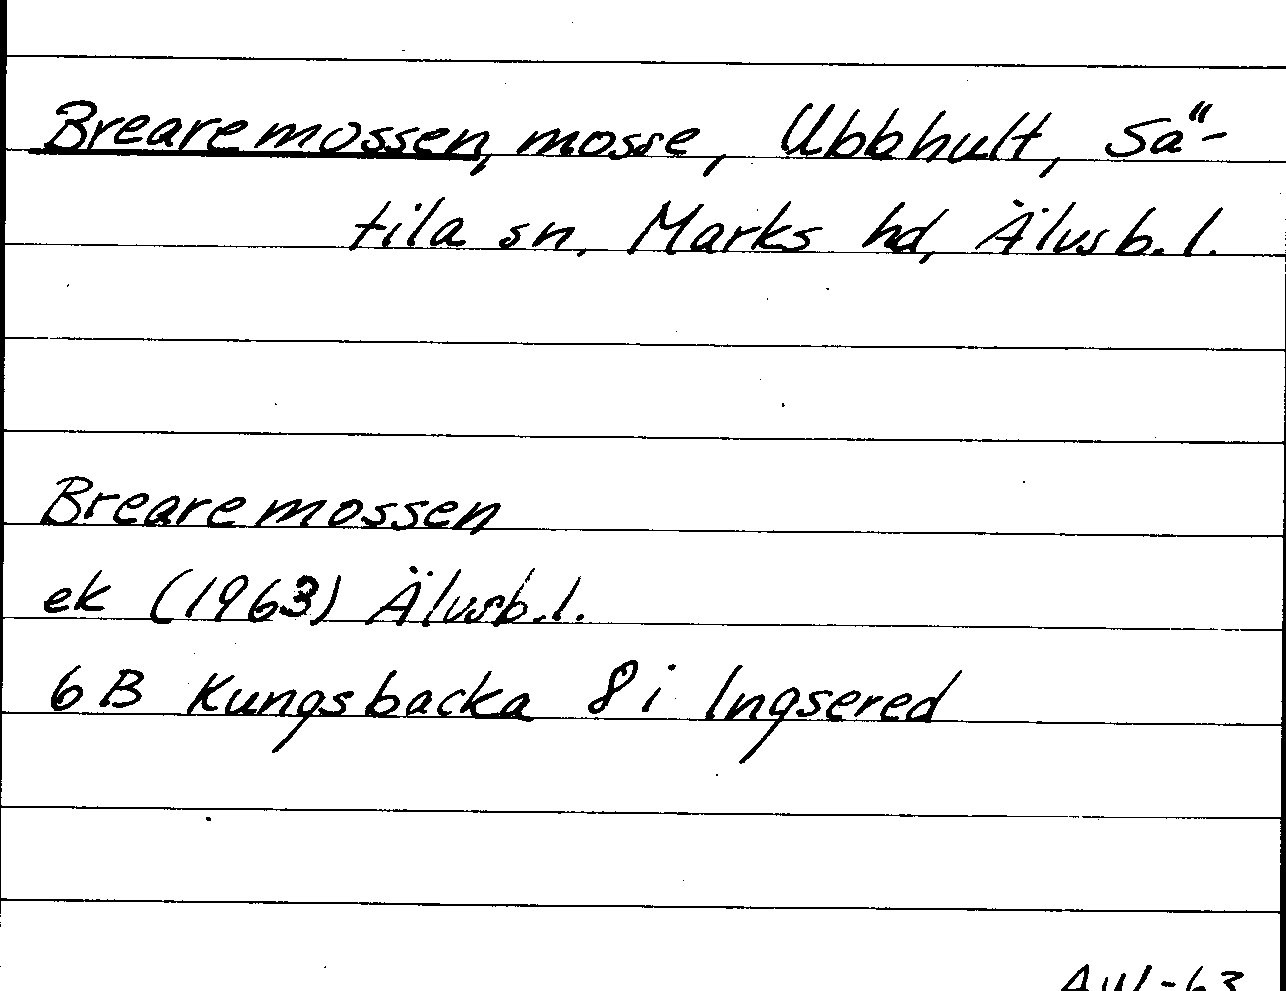 Brearemossen, mosse, Ubbhult, Sä-
tila sn, Marks hd, Älvsb. l.
Brearemossen
ek (1963) Älvsb. l.
6 B Kungsbacka 8 i Ingsered